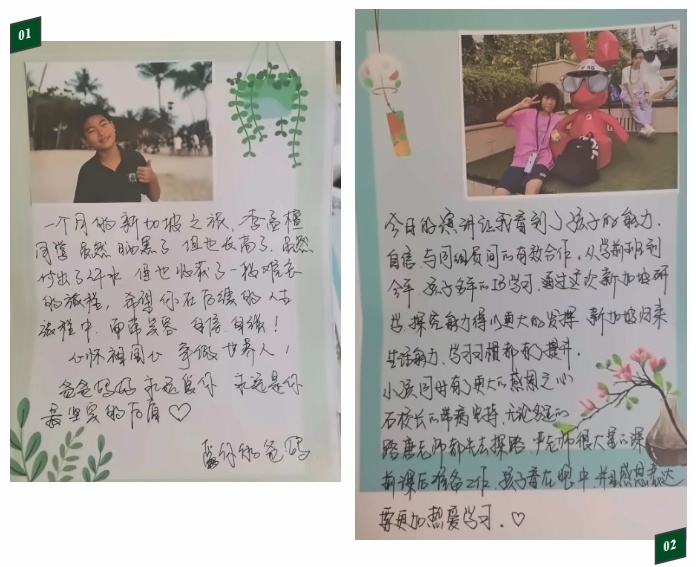 01
一个月的新加坡之旅,李孟檀
同学虽然晒黑了 但也长高了,虽然
付出了汗水 但也收获了一趟难忘
的旅程,希望你在后续的人生
旅程中,面带笑容 自信 自强!
心怀祖国心 争做世界人!
爸爸妈妈永远爱你 永远是你
最坚实的后盾♡
爱你的爸妈
今日的演讲让我看到了孩子的能力,
自信 与同组员间的有效合作,从学前班到
今年 孩子多年的IB学习,通过这次新加坡研
学 探究能力得以更大的发挥 新加坡归来
生活能力,学习习惯都有了提升.
小孩同时有了更大的感恩之心
石校长的带病坚持,无论多远的
路唐老师都先去探路 严老师很大量的课
前课后准备工作,孩子看在眼中,并感恩表达
要更加热爱学习.♡
02